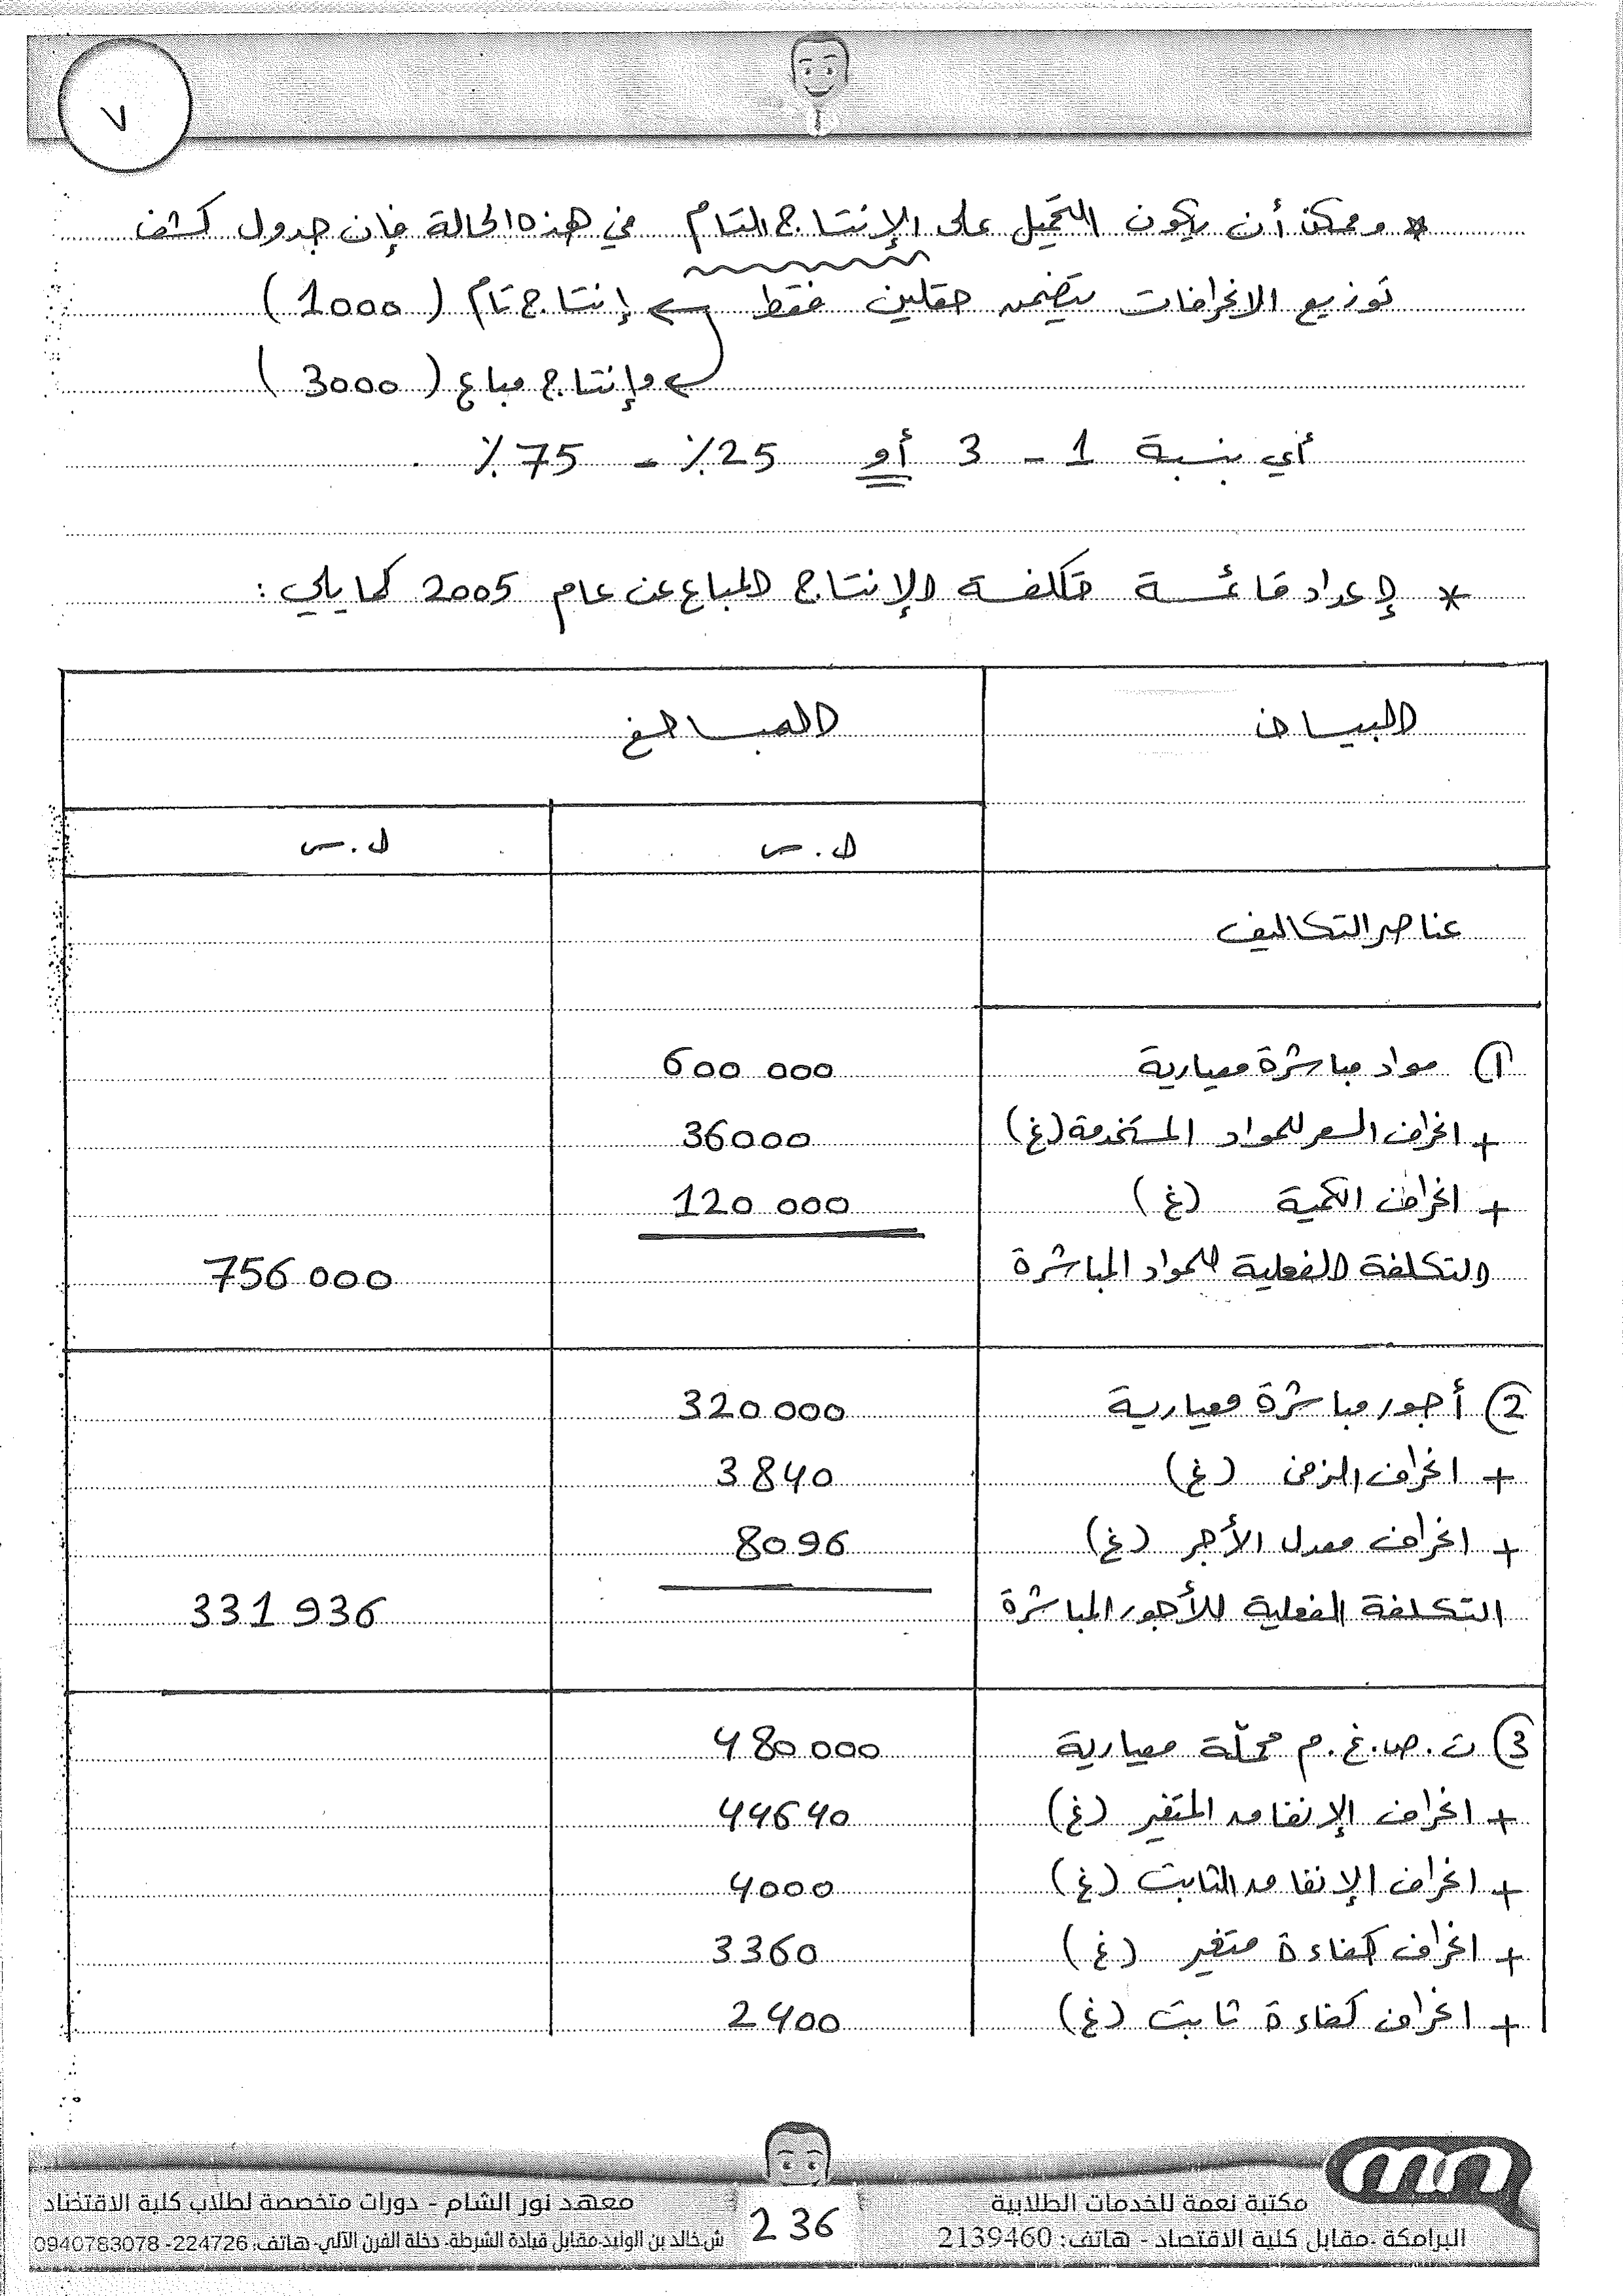 ٧
* وممكن أن يكون التحميل على الإنتاج التام في هذه الحالة فإن جدول كشف
توزيع الانحرافات يتضمن حقلين فقط ← إنتاج تام (1000)
← وإنتاج مباع (3000)
أي بنسبة 1 - 3 أو 25٪ - 75٪ .
* إعداد قائمة تكلفة الإنتاج المباع عن عام 2005 كما يلي :
البيان المبالغ
ل.س ل.س
عناصر التكاليف
① مواد مباشرة معيارية 600 000
+ انحراف السعر للمواد المستخدمة (غ) 36000
+ انحراف الكمية (غ) 120 000
التكلفة الفعلية للمواد المباشرة 756 000
② أجور مباشرة معيارية 320 000
+ انحراف الزمن (غ) 3840
+ انحراف معدل الأجر (غ) 8096
التكلفة الفعلية للأجور المباشرة 331 936
③ ت.ص.غ.م محمّلة معيارية 480 000
+ انحراف الإنفاق المتغير (غ) 44640
+ انحراف الإنفاق الثابت (غ) 4000
+ انحراف كفاءة متغير (غ) 3360
+ انحراف كفاءة ثابت (غ) 2400
مكتبة نعمة للخدمات الطلابية
البرامكة - مقابل كلية الاقتصاد - هاتف: 2139460
236
معهد نور الشام - دورات متخصصة لطلاب كلية الاقتصاد
ش.خالد بن الوليد-مقابل قيادة الشرطة- دخلة الفرن الآلي- هاتف: 224726- 0940783078